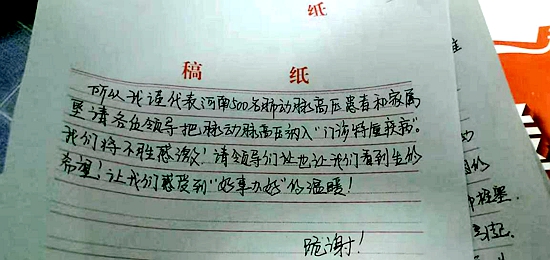 纸
稿 纸
所以我谨代表河南500名肺动脉高压患者和家属
恳请各位领导把肺动脉高压纳入“门诊特属疾病”。
我们将不胜感激！请领导们让也让我们看到生的
希望！让我们感受到“好事办好”的温暖！
跪谢！